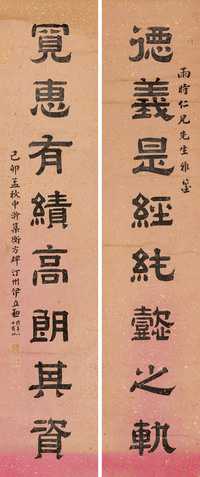 德義是經純懿之軌
雨時仁兄先生雅鑒
寬惠有績高朗其資
己卯孟秋中澣集衡方碑汀州伊立勳